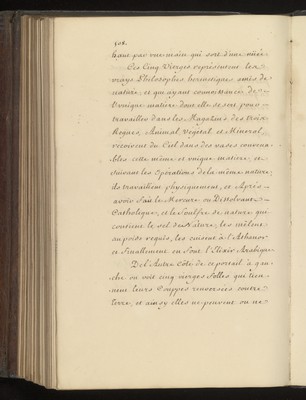 108.
haut par une main qui sort d'une nüe.
Ces Cinq Vierges représentent les
vrays Philosophes hermétiques amis de
nature, et qui ayant connoissances de
l'unique matiere dont elle se sert pour
travailler dans les Magazins des trois
Regnes, Animal Vegétal et Minéral,
recoivent du Ciel dans des vases convena-
bles cette même et unique matiere, et
suivant les Opérations de la même nature
ils travaillent physiquement, et Après
avoir fait le Mercure ou Dissolvant
Catholique, et le Soulfre de nature qui
contient le sel de Nature, les mêlent
au poids requis, les cuisent à l'Athanor
et Finallement en font l'Elixir Arabique
De l'Autre Côté de ce portail à gau-
che on voit cinq vierges folles qui tien-
nent leurs Couppes renversées contre
terre, et ainsy elles ne peuvent ou ne